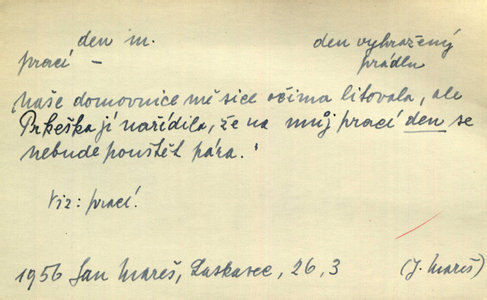 den m.
prací –
den vyhražený
prádlu
Naše domovnice mě sice očima litovala, ale
Prkeška jí nařídila, že na můj prací den se
nebude pouštět pára.'
Viz: prací.
1956 Jan Mareš, Laskavec, 26, 3 (J. Mareš)